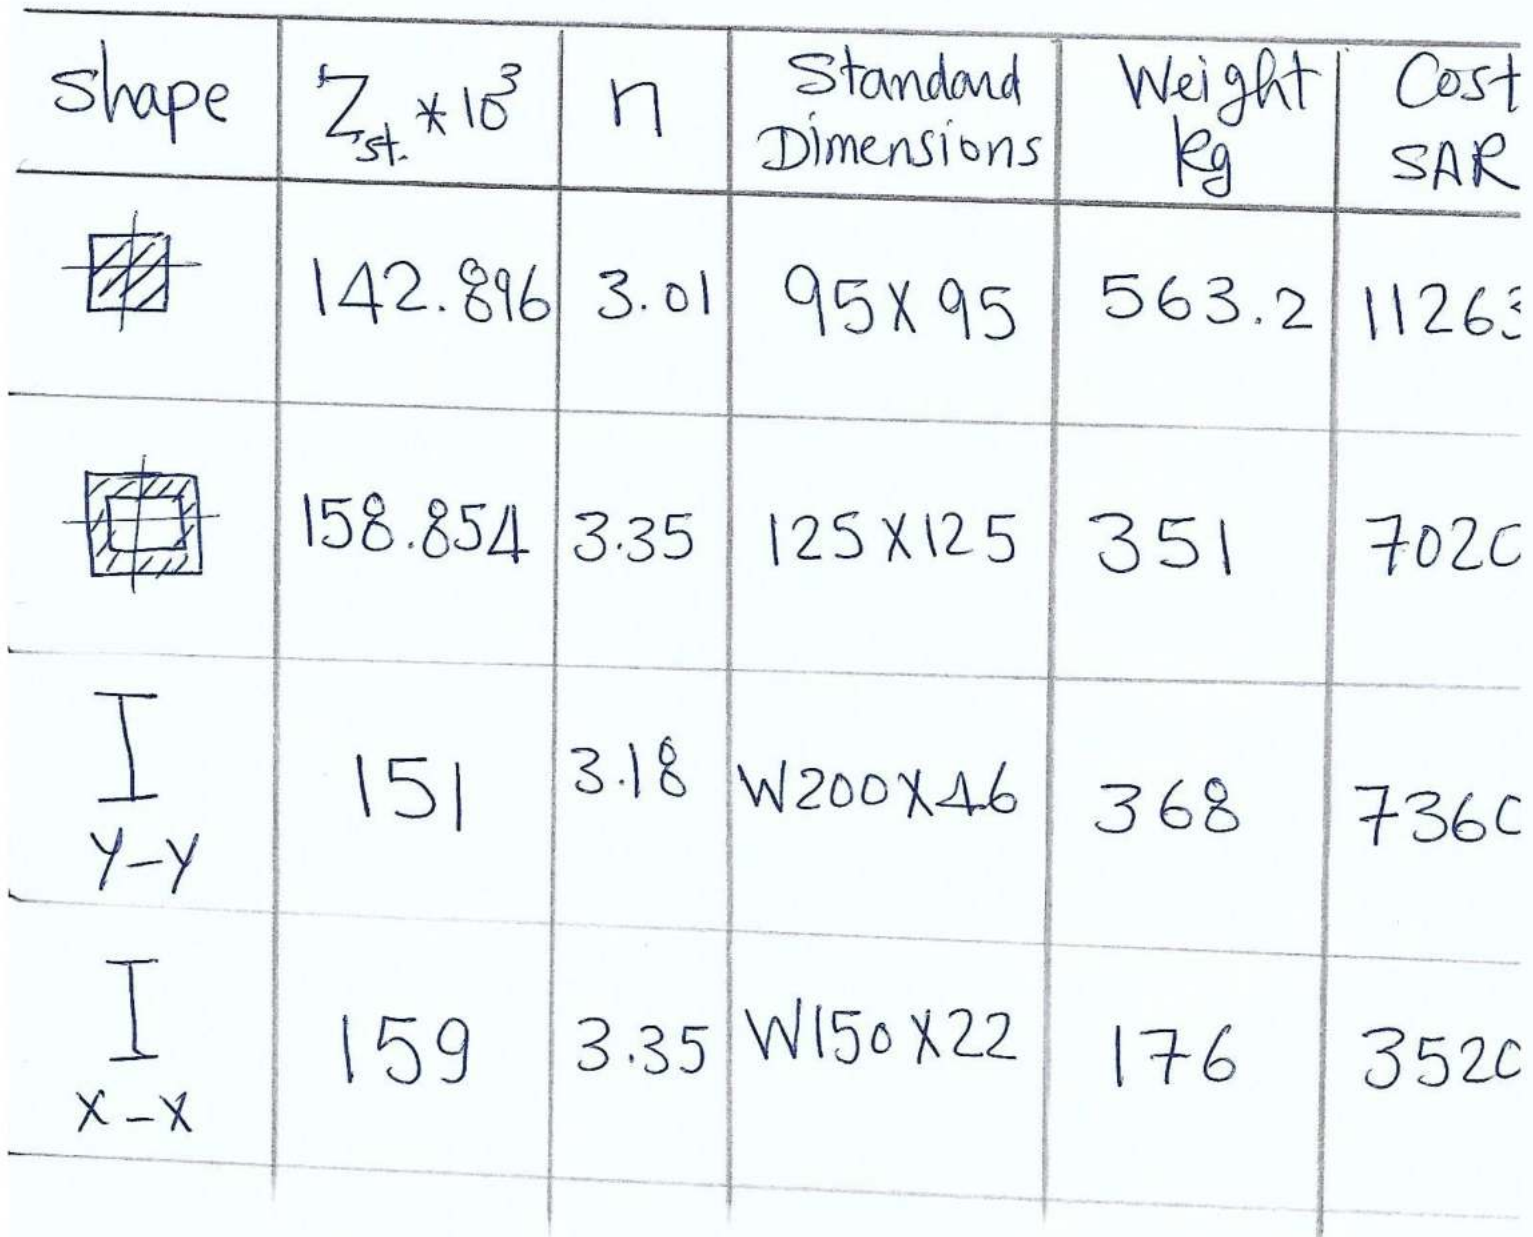 Shape Z_st. * 10³ n Standard Dimensions Weight kg Cost SAR
142.896 3.01 95 X 95 563.2 1126
158.854 3.35 125 X 125 351 702
I Y-Y 151 3.18 W200 X 46 368 736
I X-X 159 3.35 W150 X 22 176 352